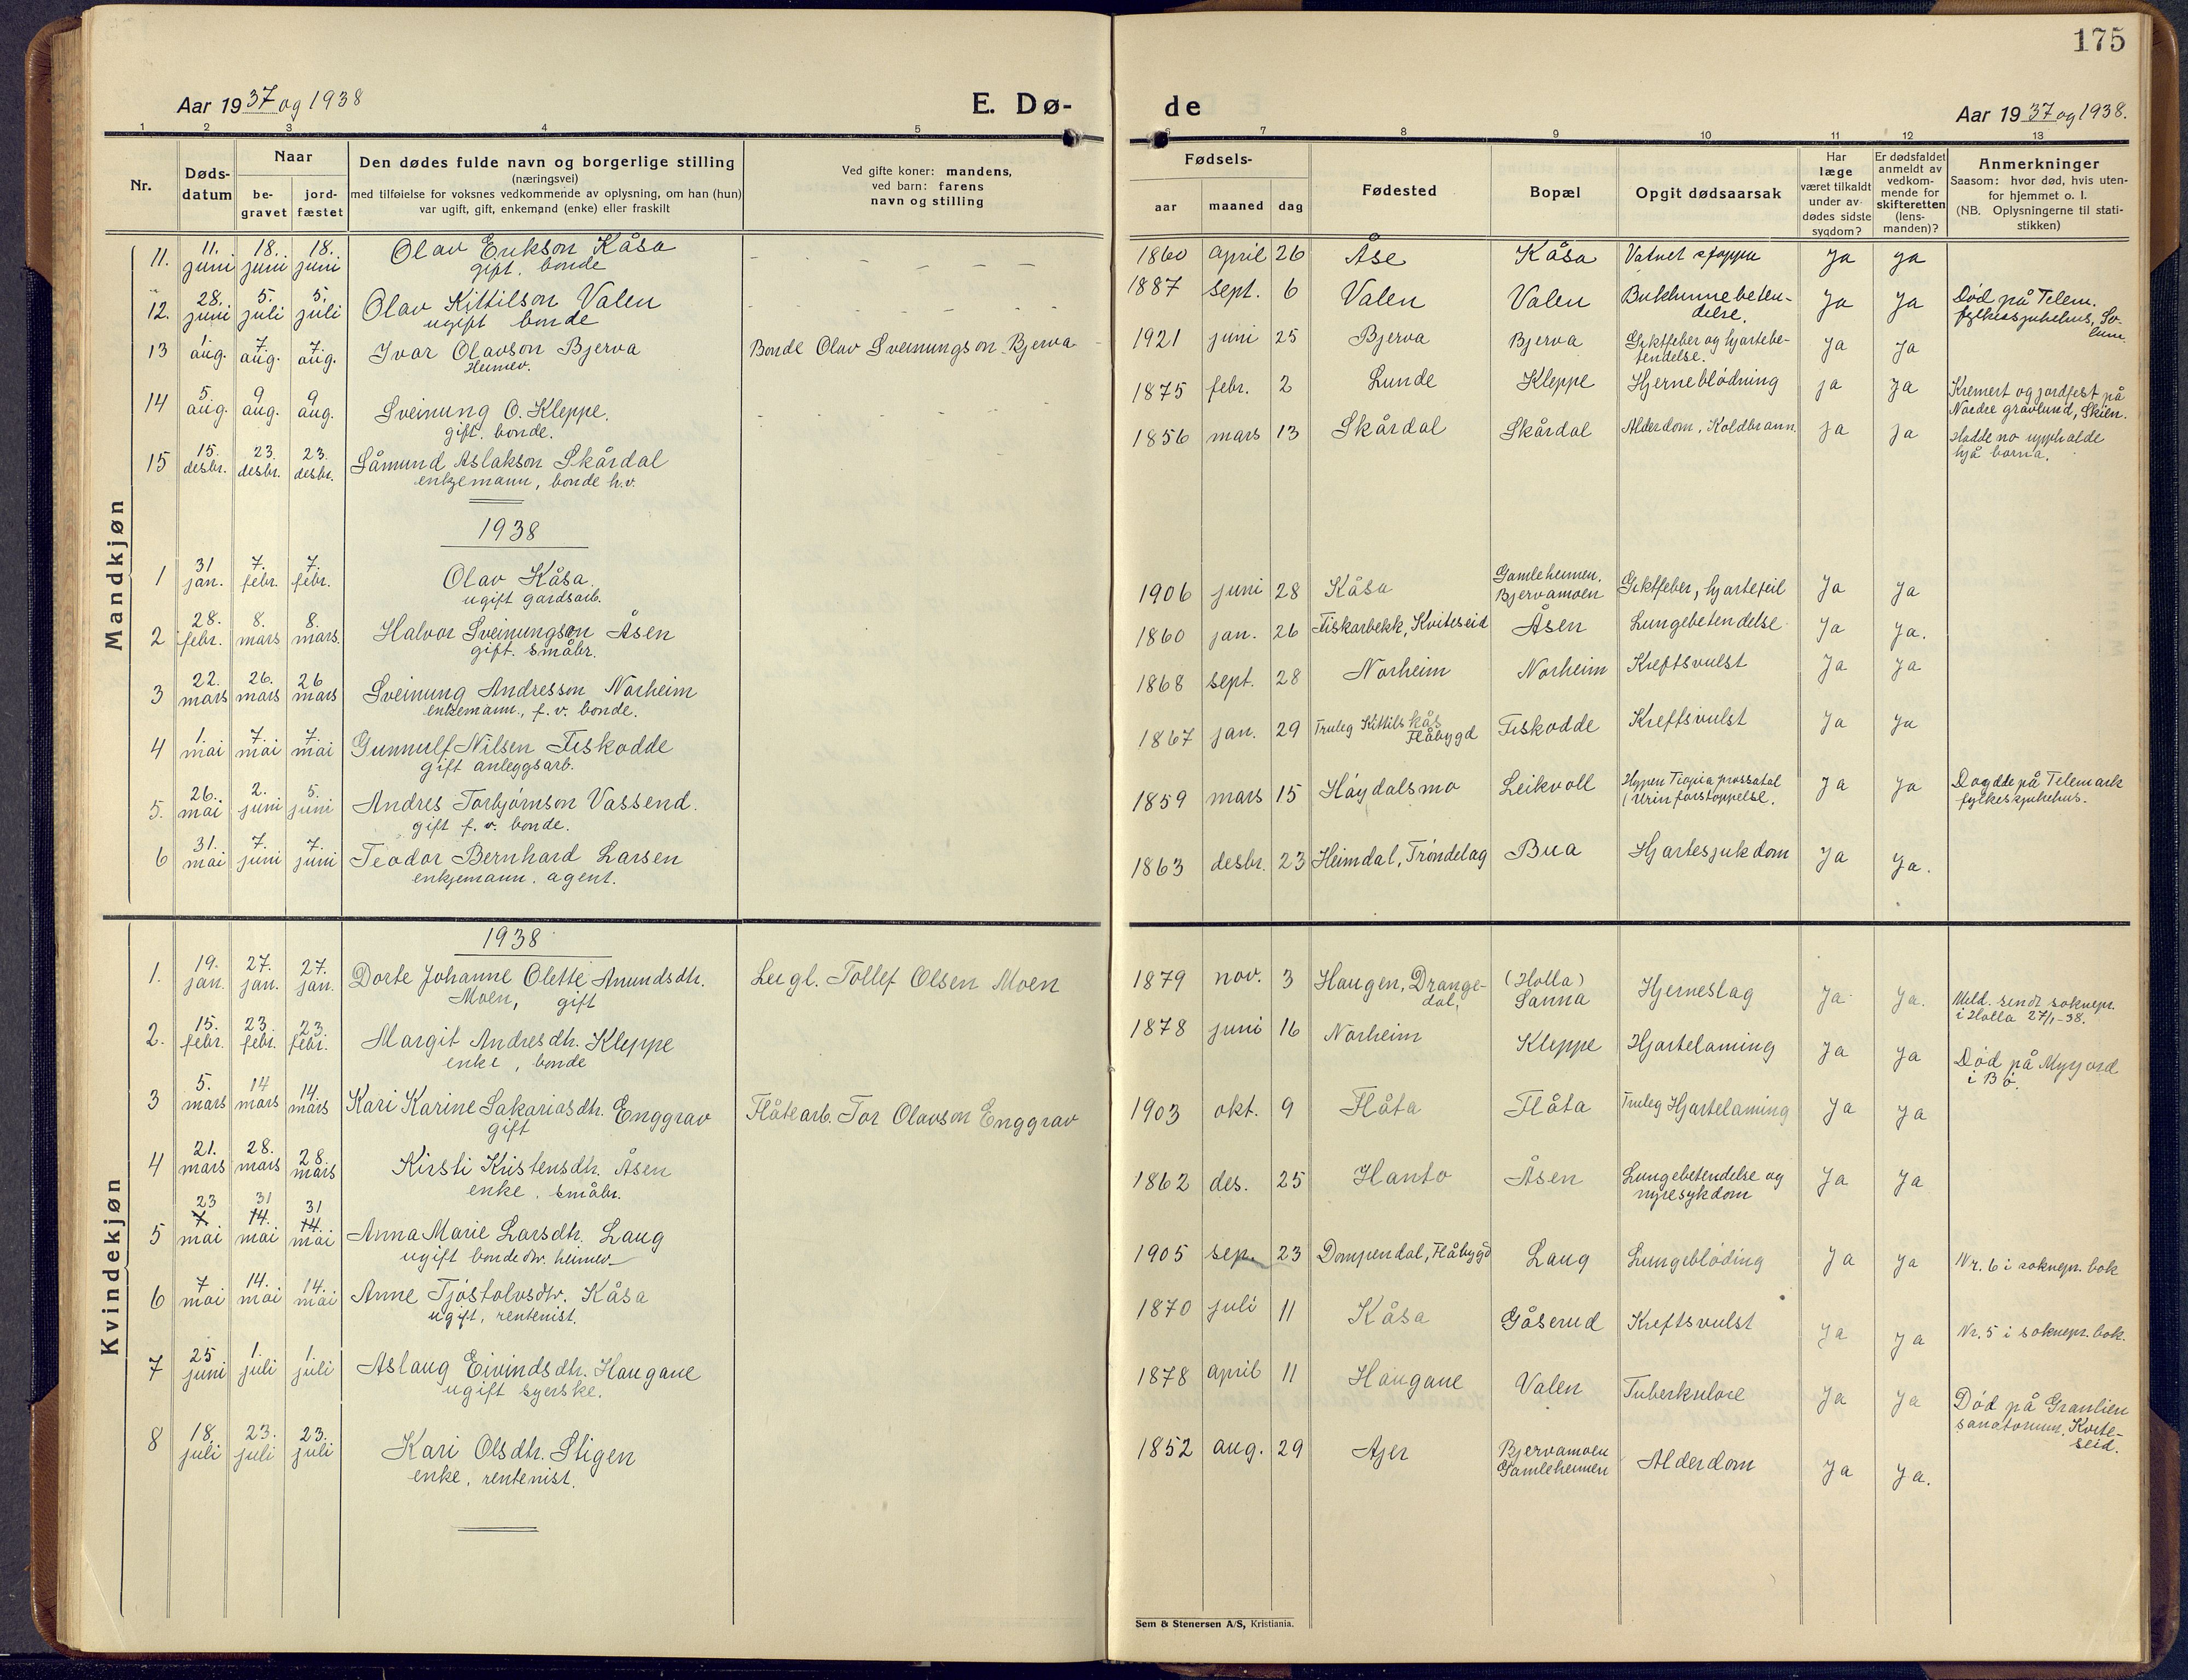 175
Aar 1937 og 1938
E. Dø-
de
Aar 1937 og 1938.
1 2 3 4 5
6 7 8 9 10 11 12 13
Nr.
Døds-
datum
Naar
be-
gravet
jord-
fæstet
Den dødes fulde navn og borgerlige stilling
(næringsvei)
med tilføielse for voksnes vedkommende av oplysning, om han (hun)
var ugift, gift, enkemand (enke) eller fraskilt
Ved gifte koner: mandens,
ved barn: farens
navn og stilling
Fødsels-
aar maaned dag
Fødested
Bopæl
Opgit dødsaarsak
Har
læge
været tilkaldt
under av-
dødes sidste
sygdom?
Er dødsfaldet
anmeldt av
vedkom-
mende for
skifteretten
(lens-
manden)?
Anmerkninger
Saasom: hvor død, hvis uten-
for hjemmet o. l.
(NB. Oplysningerne til stati-
stikken)
Mandkjøn
11. 11. juni 18. juni 18. juni Olav Erikson Kåsa 1860 april 26 Åse Kåsa Ja Ja
gift. bonde
12. 28. juni 5. juli 5. juli Olav Kittilson Valen 1887 sept. 6 Valen Valen Bukhinnebeten- Ja Ja Død på Telem.
ugift bonde delse. fylkessjukehus, So-
lum.
13 1. aug. 7. aug. 7. aug. Ivar Olavson Bjerva Bonde Olav Sveinungson Bjerva 1921 juni 25 Bjerva Bjerva Giktfeber og hjartebe- Ja Ja
Heimev. tendelse.
14 5 aug. 9 aug. 9 aug. Sveinung O. Kleppe. 1875 febr. 2 Lunde Kleppe Hjerneblödning ja Ja Kremert og jordfest på
gift. bonde. Nordre gravlund, Skien.
15 15. desbr. 23. desbr. 23. desbr. Såmund Aslakson Skårdal 1856 mars 13 Skårdal Skårdal Alderdom, Koldbrann. ja ja Hadde no upphalde
enkjemann, bonde h.v. hjå borna.
1938
1 31 jan. 7. febr. 7. febr. Olav Kåsa. 1906 juni 28 Kåsa Gamleheimen. Bjervamoen Giktfeber, hjartefeil Ja Ja
ugift gardsarb.
2 28. febr. 8. mars 8. mars. Halvor Sveinungson Åsen 1860 jan. 26 Fiskarbekk, Kviteseid Åsen Lungebetendelse Ja Ja.
gift. småbr.
3 22. mars 26. mars 26 mars Sveinung Andresson Norheim 1868 sept. 28 Norheim Norheim Kreftsvulst Ja Ja
enkemann, f. v. bonde.
4 1. mai 7. mai 7. mai Gunnulf Nilsen Fiskodde 1867 jan. 29 Truleg Kittilskås Flåbygd Fiskodde Kreftsvulst Ja Ja
gift anleggsarb.
5. 26. mai 2. juni 5. juni Andres Torbjørnson Vassend. 1859 mars 15 Høydalsmo Leikvoll (Urin forstoppelse. Ja Ja Doydde på Telemark
gift f. v. bonde. fylkessjukehus.
6 31. mai 7. juni 7. juni Teodor Bernhard Larsen 1863 desbr. 23 Heimdal, Trøndelag Bua Hjartesjukdom Ja Ja.
enkjemann. agent.
Kvindekjøn
1938
1. 19. jan. 27. jan. 27. jan. Dorte Johanne Olette Amundsdtr. Leigl. Tollef Olsen Moen 1879 nov. 3 Haugen, Drange- (Holla) Sanna Hjerneslag Ja Ja. Meld. sendt soknepr.
Moen, gift dal. i Holla 27/1-38.
2. 15. febr. 23 febr. 23. febr. Margit Andresdtr. Kleppe 1878 juni 16 Norheim Kleppe Hjartelaming Ja Ja Død på Myrjord
enke, bonde i Bø.
3 5. mars 14 mars 14. mars Kari Karine Sakariasdtr. Enggrav Flåtearb. Tor Olavson Enggrav 1903 okt. 9 Flåta Flåta Truleg Hjartelaming Ja Ja
gift
4 21. mars 28. mars 28. mars Kirsti Kristensdtr. Åsen 1862 des. 25 Hanto Åsen Lungebetendelse og Ja Ja
enke. småbr. nyresykdom
5 23 7 mai 31 14. mai 31 14. mai Anna Marie Larsdtr. Laug 1905 sep. 23 Dompendal, Flåbygd Laug Lungeblöding Ja Ja Nr. 6 i soknepr. bok
ugift bondedtr. heimev.
6 7 mai 14. mai 14. mai Anne Tjøstolvsdtr. Kåsa 1870 juli 11 Kåsa Gåserud Kreftsvulst Ja Ja Nr. 5 i soknepr. bok.
ugift, rentenist.
7 25 juni 1. juli 1. juli Aslaug Eivindsdtr. Haugane 1878 april 11 Haugane Valen Tuberkulose Ja Ja Død på Granlien
ugift syerske. sanatorium, Kvite-
seid.
8 18. juli 23. juli 23. juli Kari Olsdtr. Stigen 1852 aug. 29 Ajer Bjervamoen Gamleheimen Alderdom Ja Ja.
enke, rentenist.
Sem & Stenersen A/S, Kristiania.